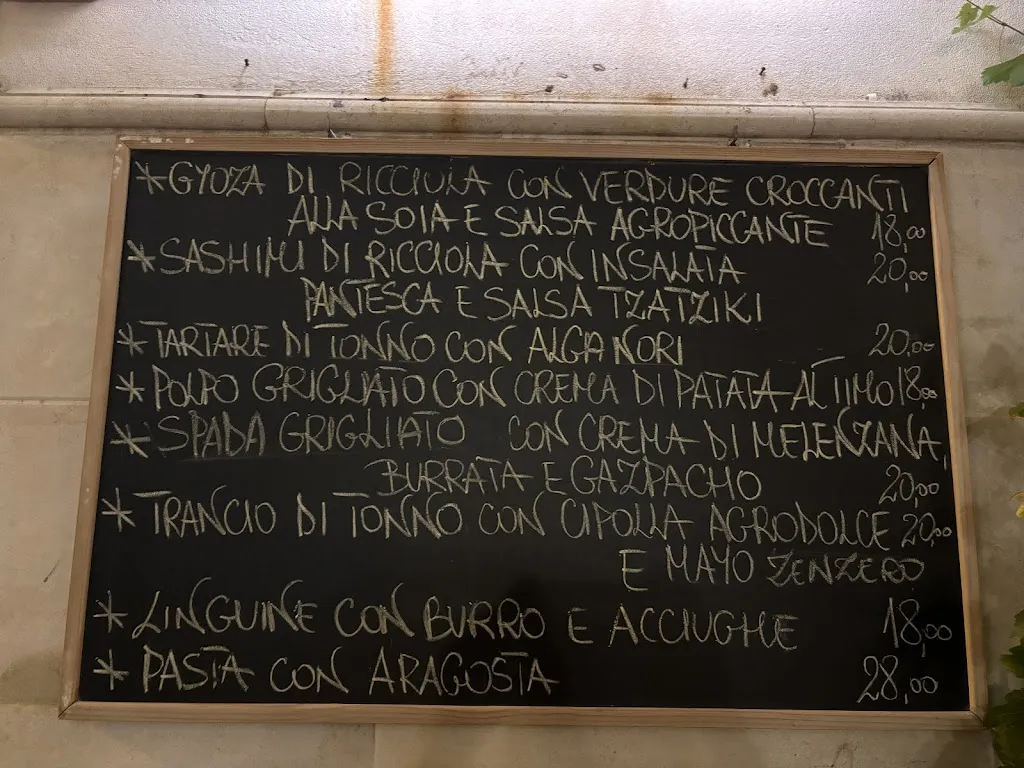 *GYOZA DI RICCIOLA CON VERDURE CROCCANTI
ALLA SOIA E SALSA AGROPICCANTE 18,00
*SASHIMI DI RICCIOLA CON INSALATA 20,00
PANTESCA E SALSA TZATZIKI
*TARTARE DI TONNO CON ALGA NORI 20,00
*POLPO GRIGLIATO CON CREMA DI PATATA AL TIMO 18,00
*SPADA GRIGLIATO CON CREMA DI MELENZANA,
BURRATA E GAZPACHO 20,00
*TRANCIO DI TONNO CON CIPOLLA AGRODOLCE 20,00
E MAYO ZENZERO
*LINGUINE CON BURRO E ACCIUGHE 18,00
*PASTA CON ARAGOSTA 28,00